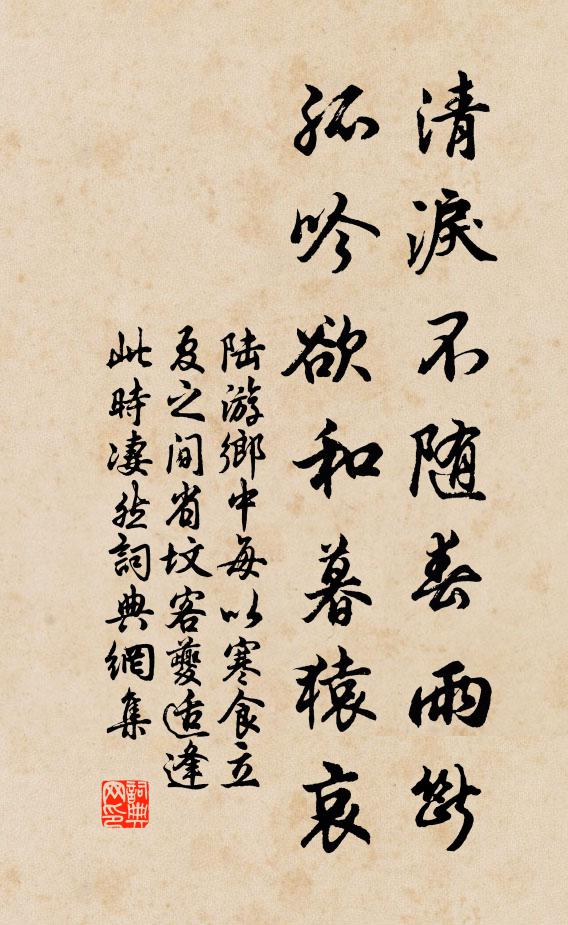 清淚不随春雨斷
孤吟欲和暮猿哀
陆游鄉中每以寒食立
夏之间省坟客夔适逢
此時凄然詞典網集
詞典网印